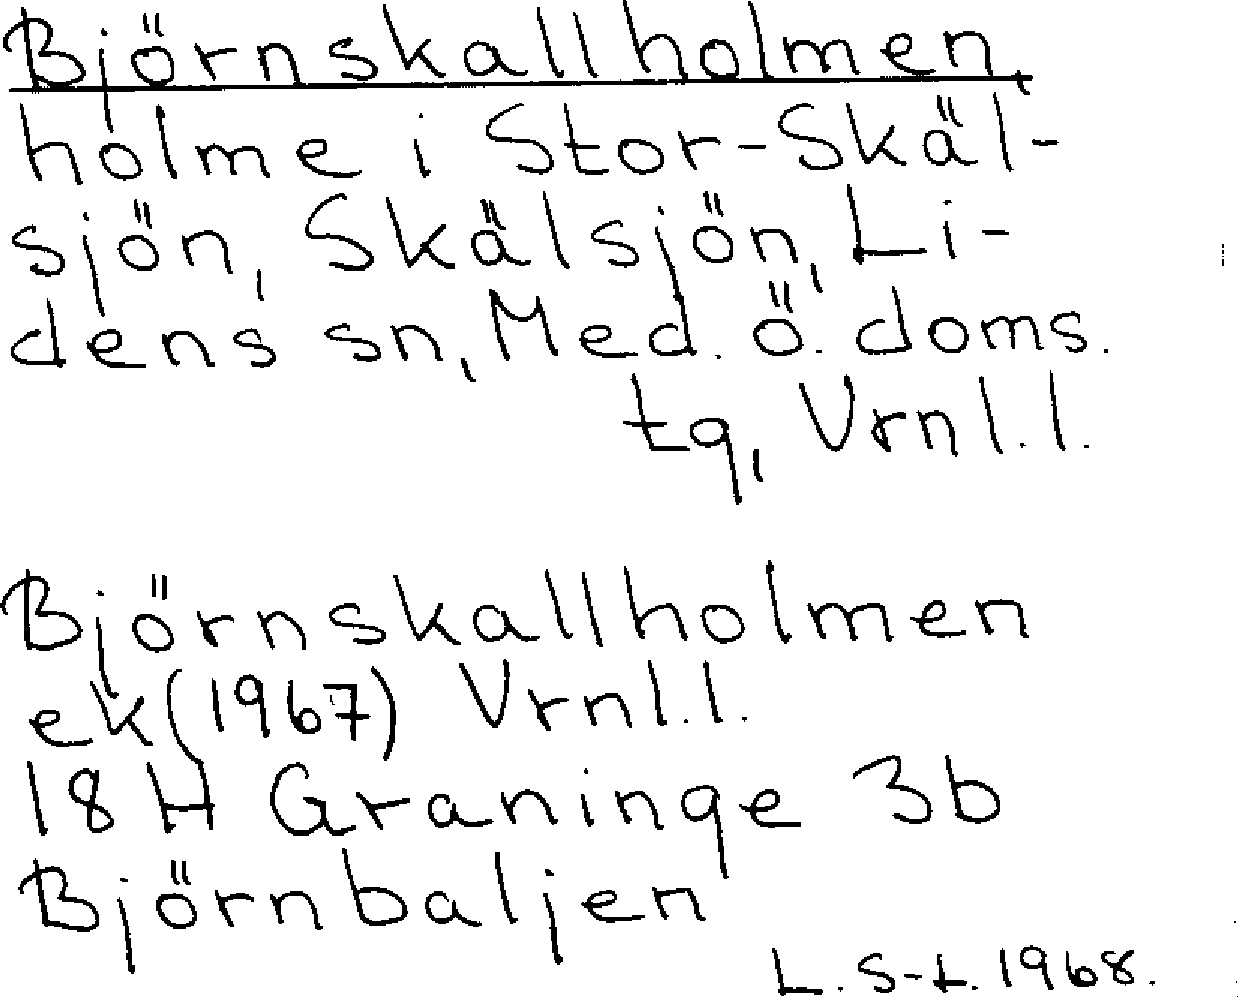 Björnskallholmen,
holme i Stor-Skäl-
sjön, Skälsjön, Li-
dens sn, Med. ö. doms.
tg, Vrnl.l.
Björnskallholmen
ek (1967) Vrnl.l.
18 H Graninge 3b
Björnbaljen
L. S-t. 1968.